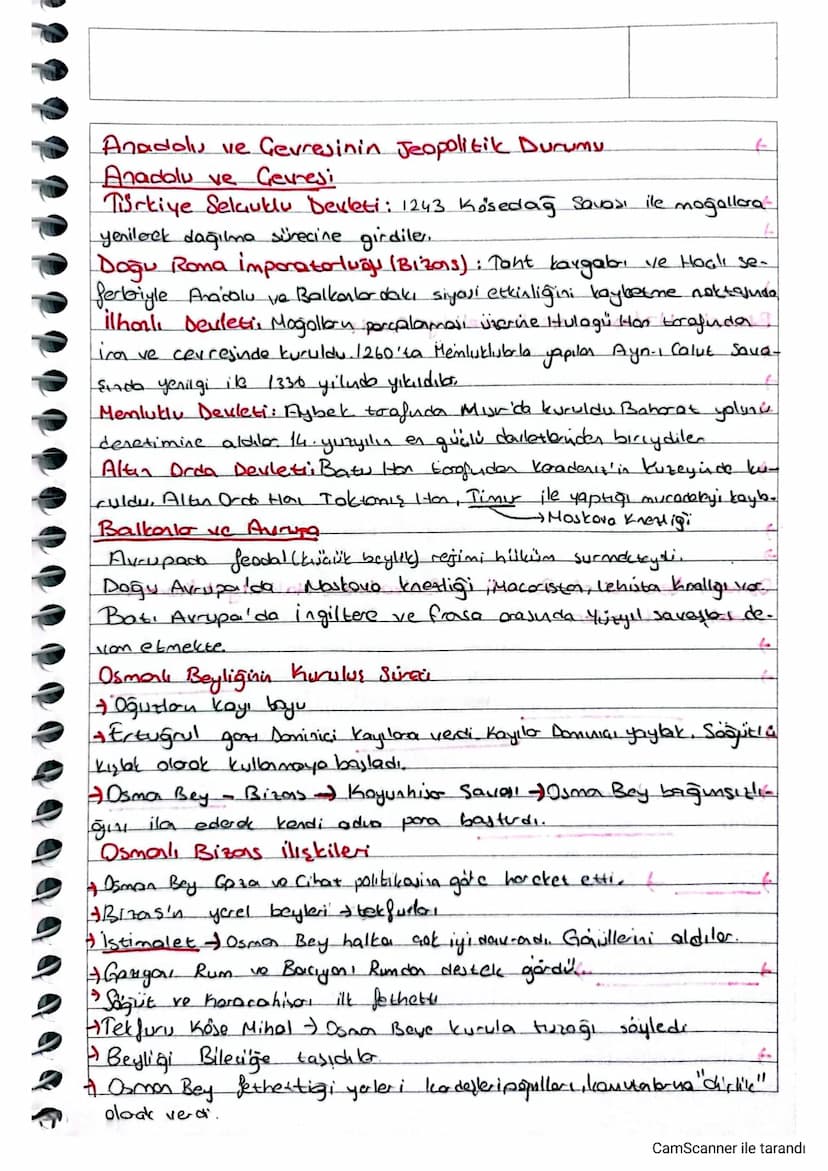 Anadolu ve Çevresinin Jeopolitik Durumu
Anadolu ve Çevresi
Türkiye Selçuklu Devleti: 1243 Kösedağ Savası ile moğollara
yenilerek dağılma sürecine girdiler.
Doğu Roma İmparatorluğu (Bizans): Taht kavgaları ve Haçlı se-
ferleriyle Anadolu ve Balkanlardaki siyasi etkinliğini kaybetme noktasında
İlhanlı Devleti: Moğolların parçalanması üzerine Hulagü Han tarafından
İran ve çevresinde kuruldu. 1260'ta Memluklularla yapılan Ayn-ı Calut Sava-
şında yenilgi ile 1336 yılında yıkıldılar.
Memluklu Devleti: Aybek tarafında Mısır'da kuruldu Baharat yolunu
denetimine aldılar. 14. yuzyılın en güçlü devletlerinden biriydiler
Altın Orda Devleti: Batu Han tarafından Karadeniz'in Kuzeyinde ku-
ruldu. Altın Orda Hanı Toktamış Han, Timur ile yaptığı mucadeleyi kayb-
→ Moskova Knezliği
Balkanlar ve Avrupa
Avrupada feodal (küçük beylik) rejimi hüküm surmekteydi.
Doğu Avrupa'da Moskova knezliği, Macaristan, Lehista Krallığı var
Batı Avrupa'da İngiltere ve frasa arasında Yüzyıl savaşları de-
vam etmekte.
Osmanlı Beyliğinin Kuruluş Süreci
→ Oğuzların Kayı boyu
→ Ertuğrul gazi Domaniçi Kayılara verdi. Kayılar Domaniçi yaylak, Söğütü
kışlak olarak kullanmaya başladı.
→ Osman Bey - Bizans → Koyunhisar Savaşı → Osman Bey bağımsızlı-
ğını ilan ederek kendi adına para bastırdı.
Osmanlı Bizans ilişkileri
→ Osman Bey Gaza ve Cihat politikasina göre hareket etti.
→ Bizas'ın yerel beyleri → tekfurları
→ İstimalet → Osman Bey halka çok iyi davrandı. Gönüllerini aldılar.
→ Gaziyanı Rum ve Bacıyanı Rumdan destek gördü.
→ Söğüt ve Karacahisarı ilk fethetti
→ Tekfuru Köse Mihal → Osman Beye kurula tuzağı söyledi
→ Beyliği Bileciğe taşıdılar
→ Osman Bey fethettigi yerleri kardeşleri, komutanlarına "dirlik"
olarak verdi.
CamScanner ile tarandı